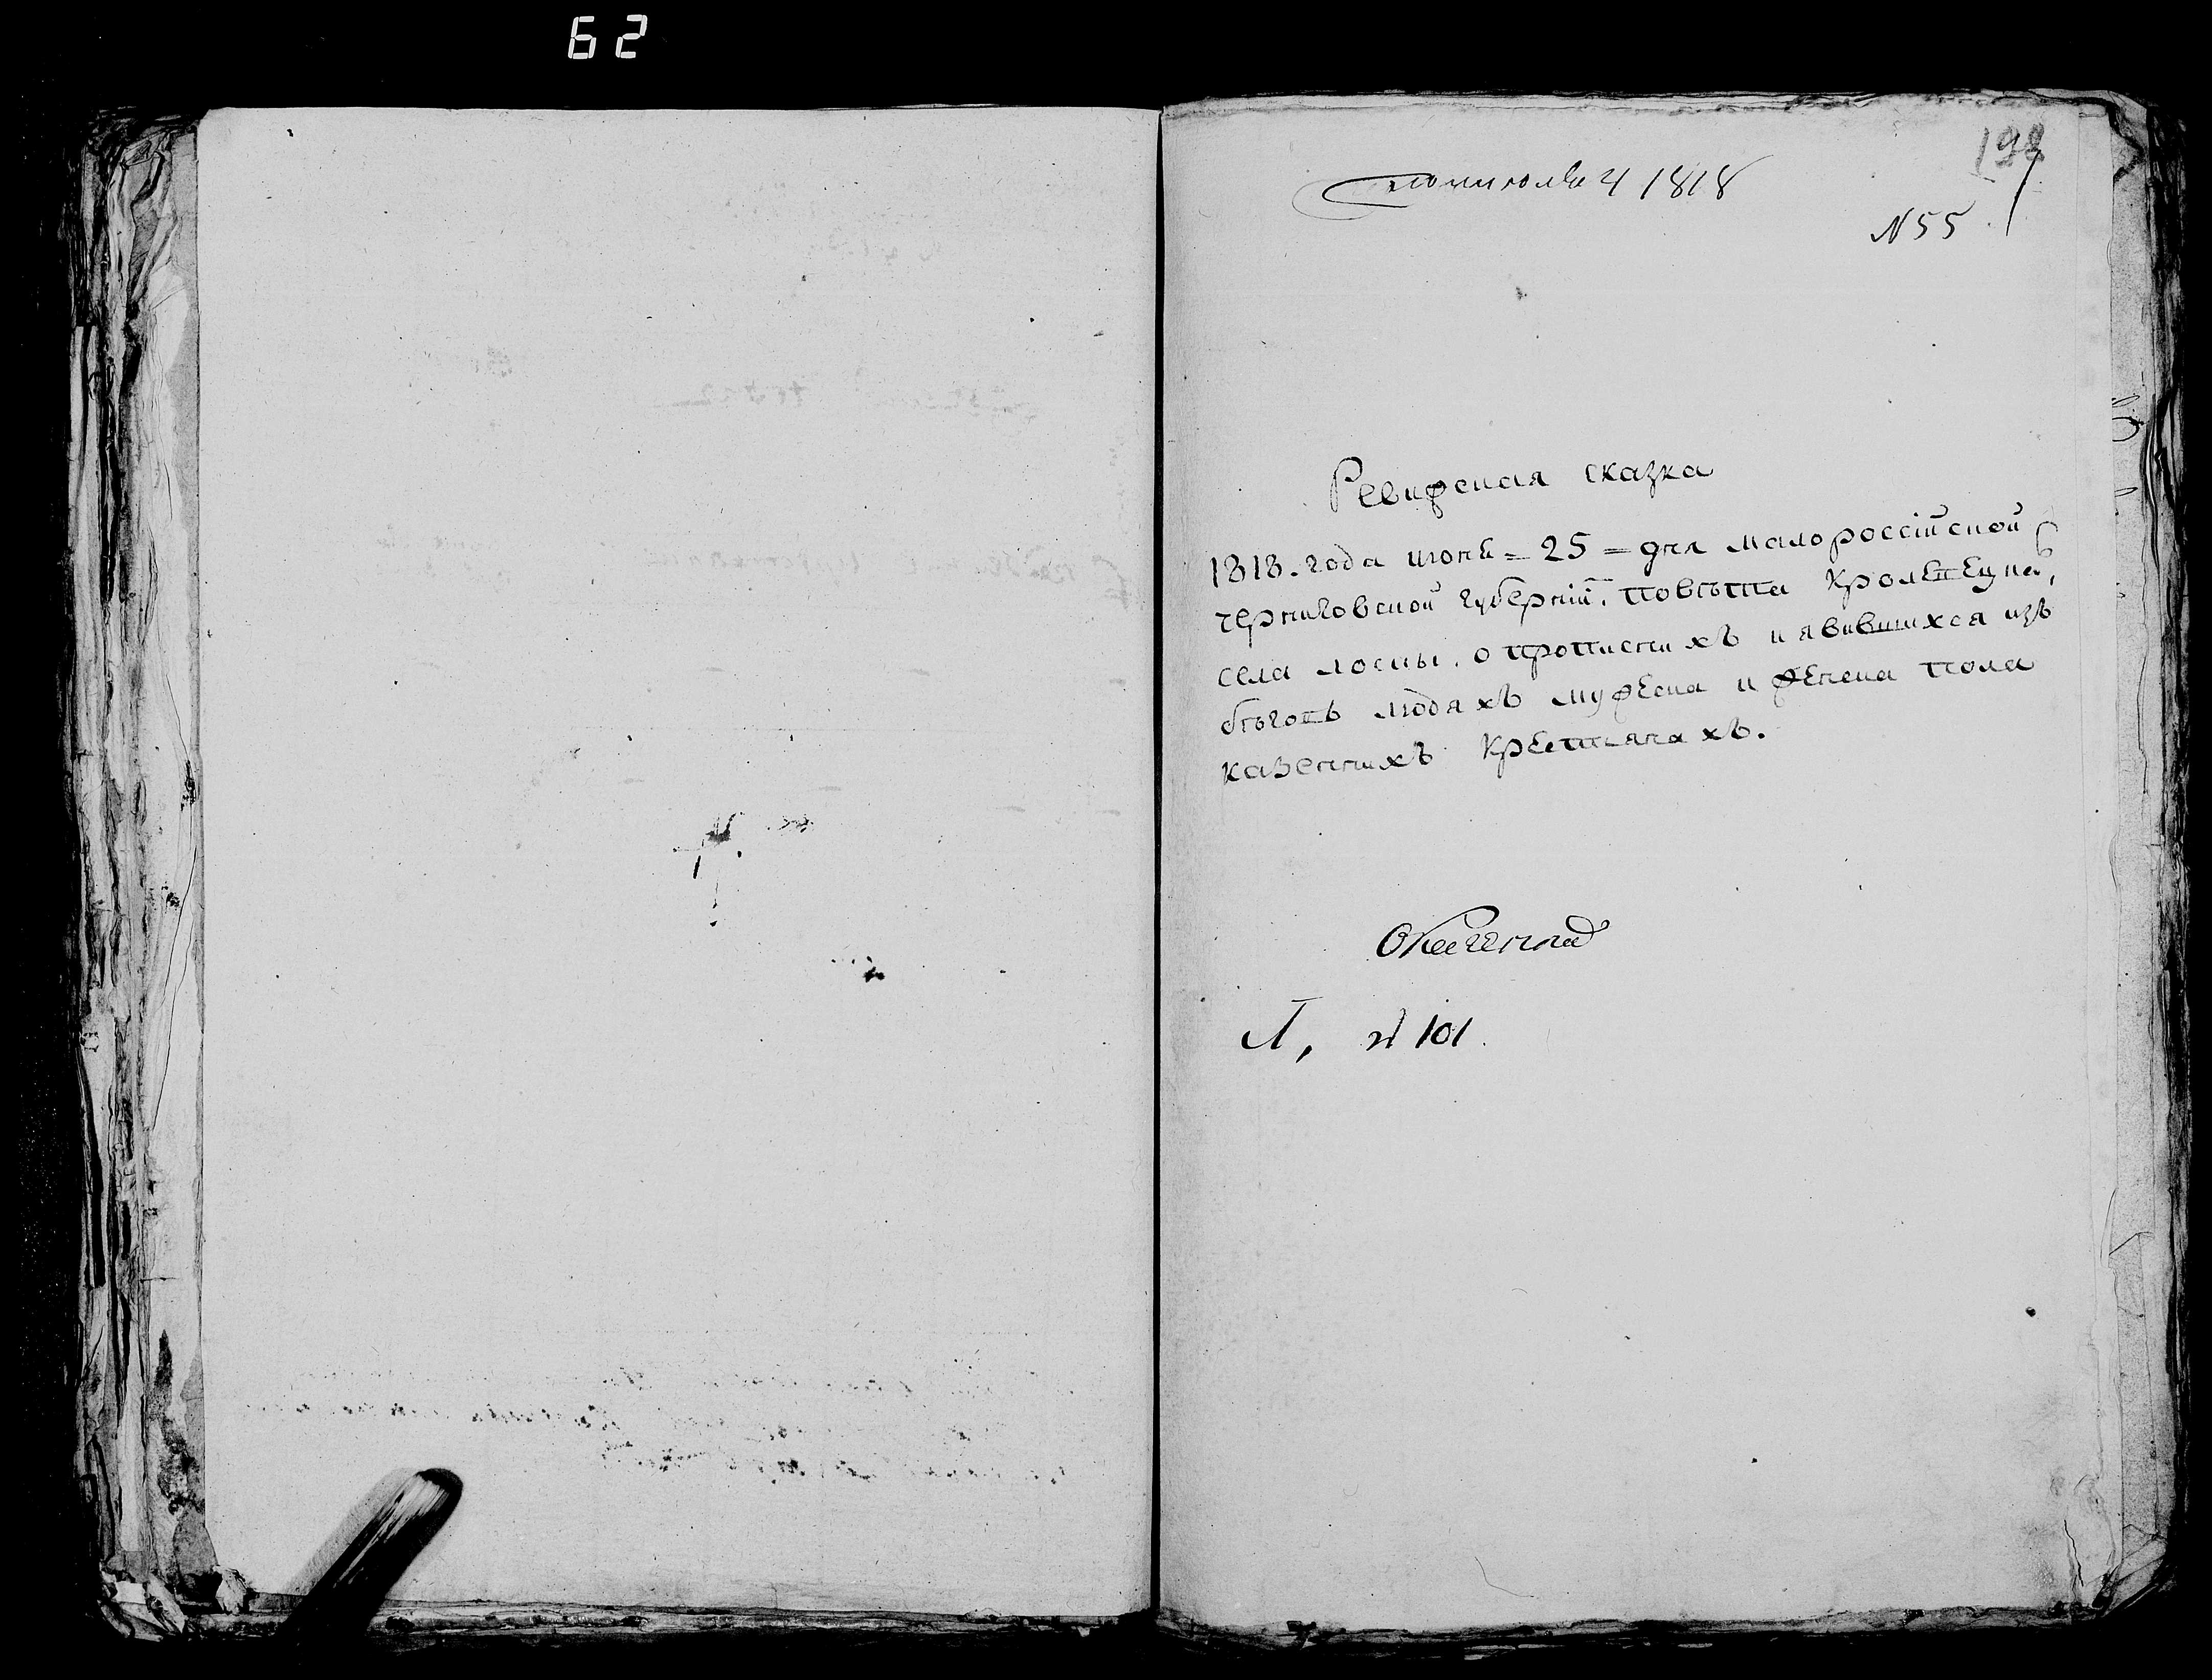 62
198
июля 4 1818
N 55
Ревизская сказка
1818. года июня = 25 = дня малороссійской
черниговской губерніи. повѣта кролевецка,
села лоски. о прописнихъ и явившихся изъ
бѣговъ людяхъ мужеска и женска пола
казеннихъ крестянахъ.
Л, № 101.